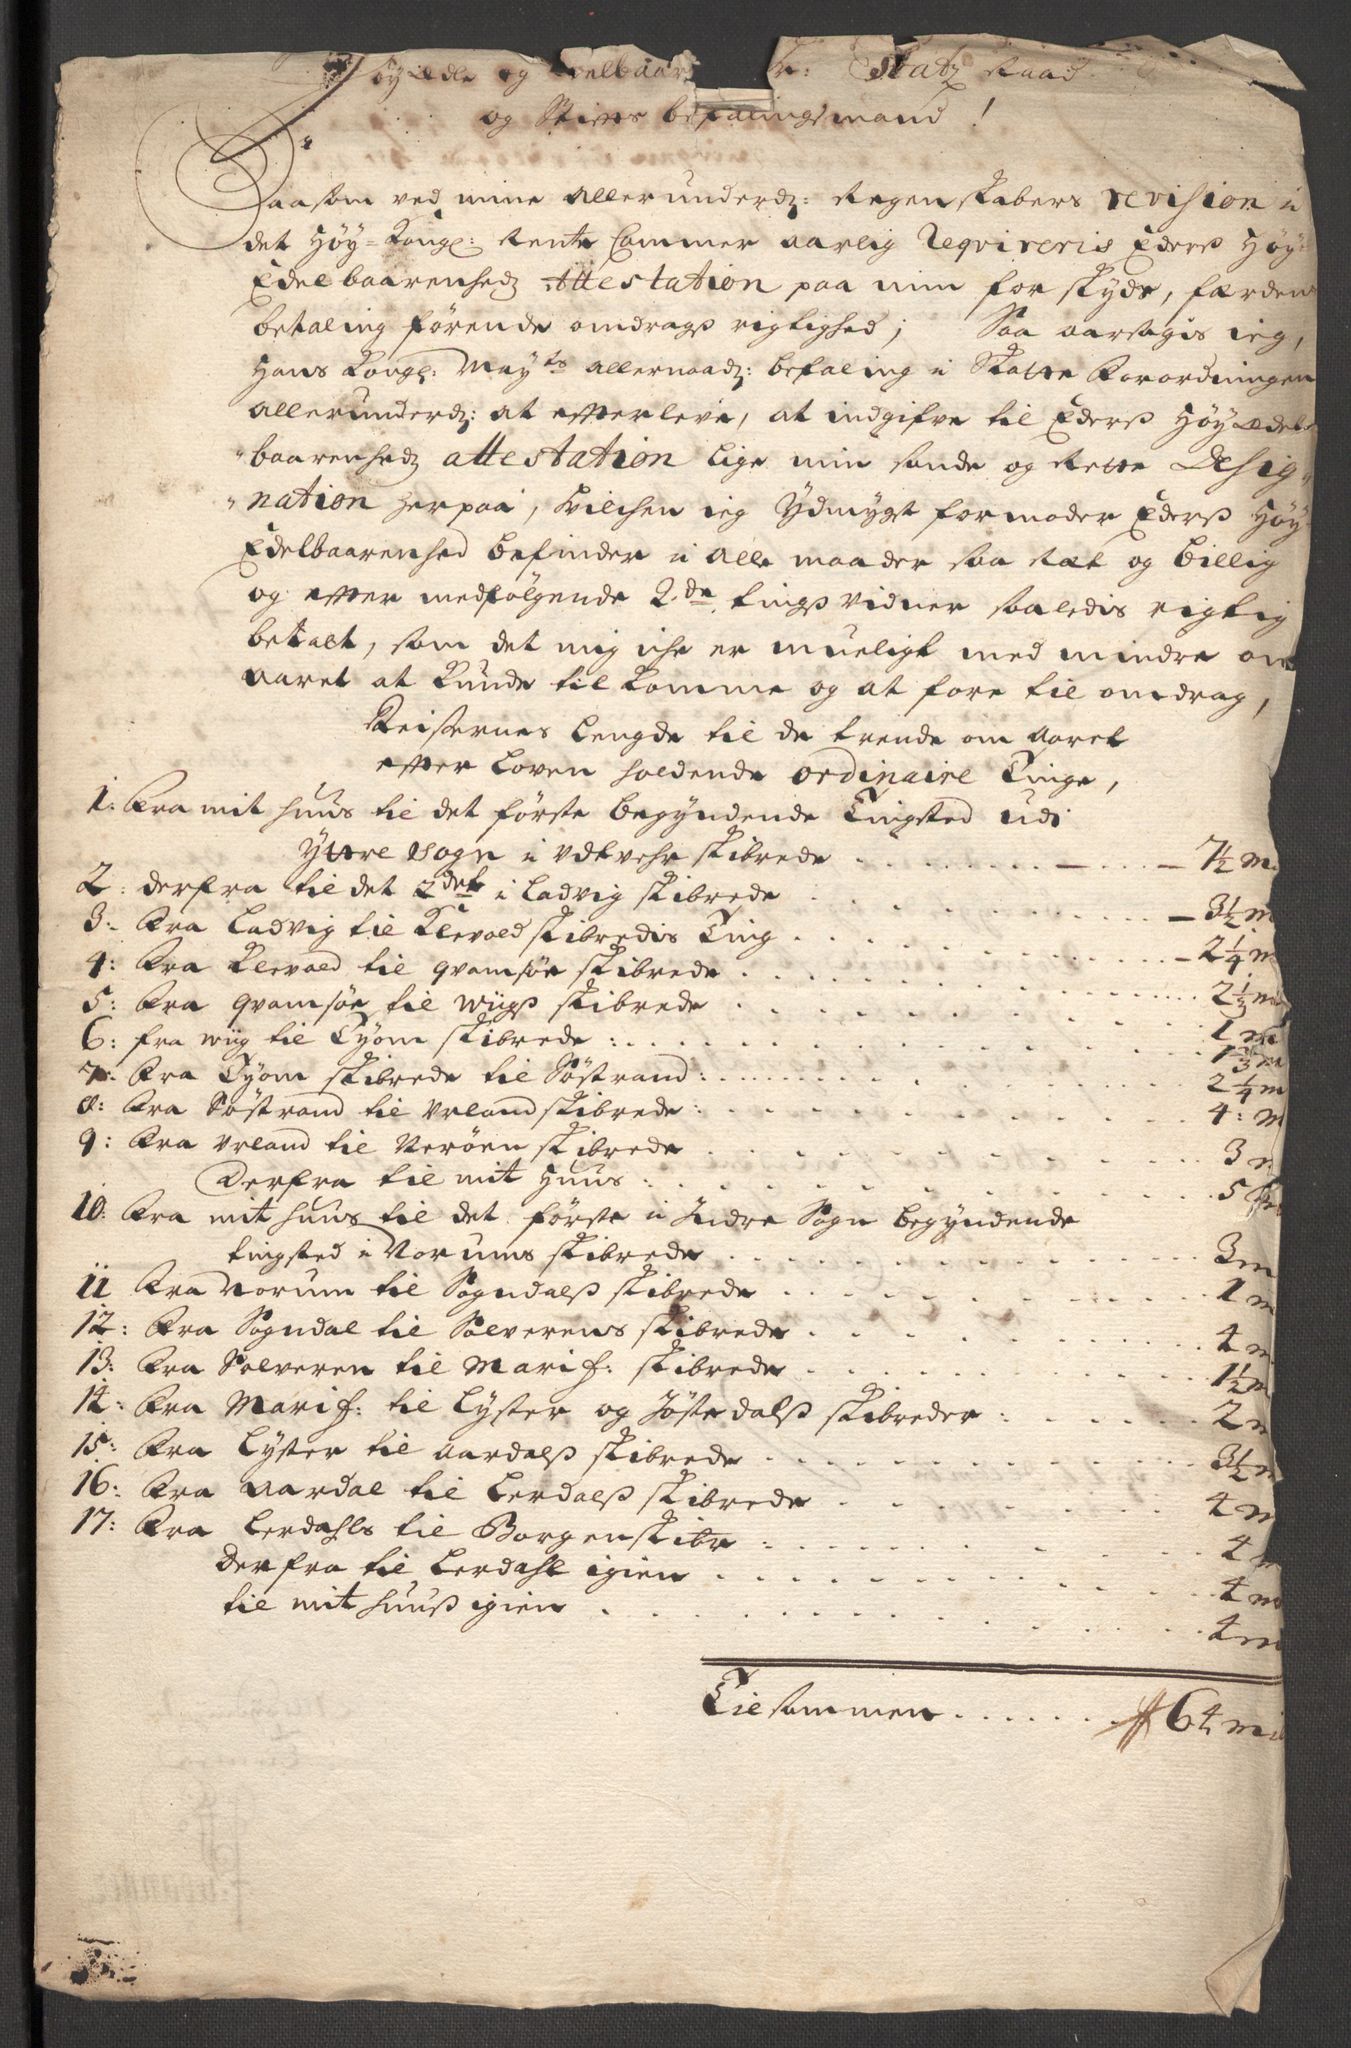 Høy Ædle og Velbaar Hr: Statz Raad
og Stiftts befalingsmand!
Saasom ved mine allerunderdz: Regenskabers revision i
det Høy-Kongl: Rente Cammer aarlig Reqvireris Ederß Høy
Edelbaarenhedz Attestation paa min for skyds, færdens
betaling førende omdragß rigtighed; Saa aarsagis ieg,
Hans Kongl: Mayts allernaadz: befaling i Skatte Forordningen
allerunderdz: at effterleve, at indgifve til Ederß Høy Ædel
baarenhedz attestation lige min sande og Rette Desig-
nation herpaa, hvilchen ieg Ydmygst formoder Ederß Høy
Edelbaarenhed befinder i alle maader saa Ræt og billig
og effter medfølgende 2de tingß vidner saaledis rigtig
betalt, som det mig iche er mueligt med mindre om
aaret at kunde til komme og at føre til omdrag,
Reisernes Lengde til de trende om aaret
effter Loven holdende ordinaire Tinge,
1: Fra mit huus til det første begyndende Tingsted udi
Yttre Sogn i Udvehr skibrede - 7½ m
2: derfra til det 2det i Ladvig skibrede - 3½ m
3: Fra Ladvig til Klevold skibredis Ting - 2¼ m
4: Fra Klevold til qvamsøe skibrede 2½ m
5: Fra qvamsøe til Wiigß skibrede 1 m
6: fra wiig til Tyom skibrede: 1⅓ m
7: Fra Tyom skibrede til Søstrand: 2¼ m
8: Fra Søstrand til Urland skibrede: 4: m
9: Fra Urland til Nerøen skibrede 3 m
Derfra til mit Huus: 5
10: Fra mit huus til det første i Indre Sogn begyndende
tingsted i Norums skibrede 3 m
11 Fra Norum til Sogndalß skibrede 1 m
12: Fra Sogndal til Solverens skibrede 4 m
13: Fra Solveren til Marif: skibrede 1½ m
14: Fra Marif: til Lyster og Jøstedalß skibreder: 2 m
15: Fra Lyster til aardalß skibrede 3½ m
16: Fra Aardal til Lerdalß skibrede 4 m
17: Fra Lerdahls til Borgen skibr: 4 m
Derfra til Lerdahl igien 4 m
til mit huuß igien 4 m
Tilsammen 64 mil